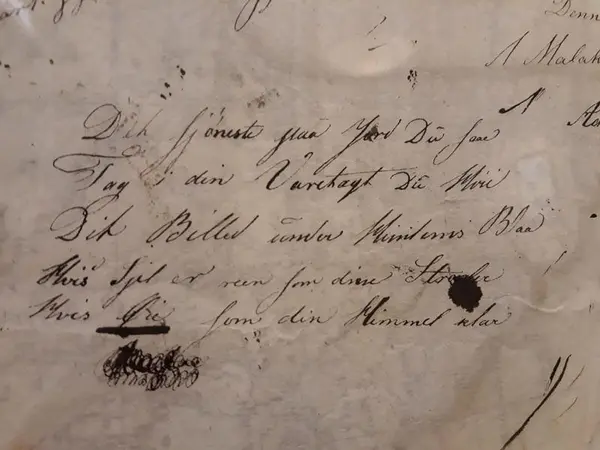 Denn
A Malah
A
Dit skjöneste paa Jord Du saae
Tag i din Varetægt Du Hvie
Dit Billed under Himlens Blaa
Hvis Sjel er reen som dine
Hvis Øie som din Himmel klar